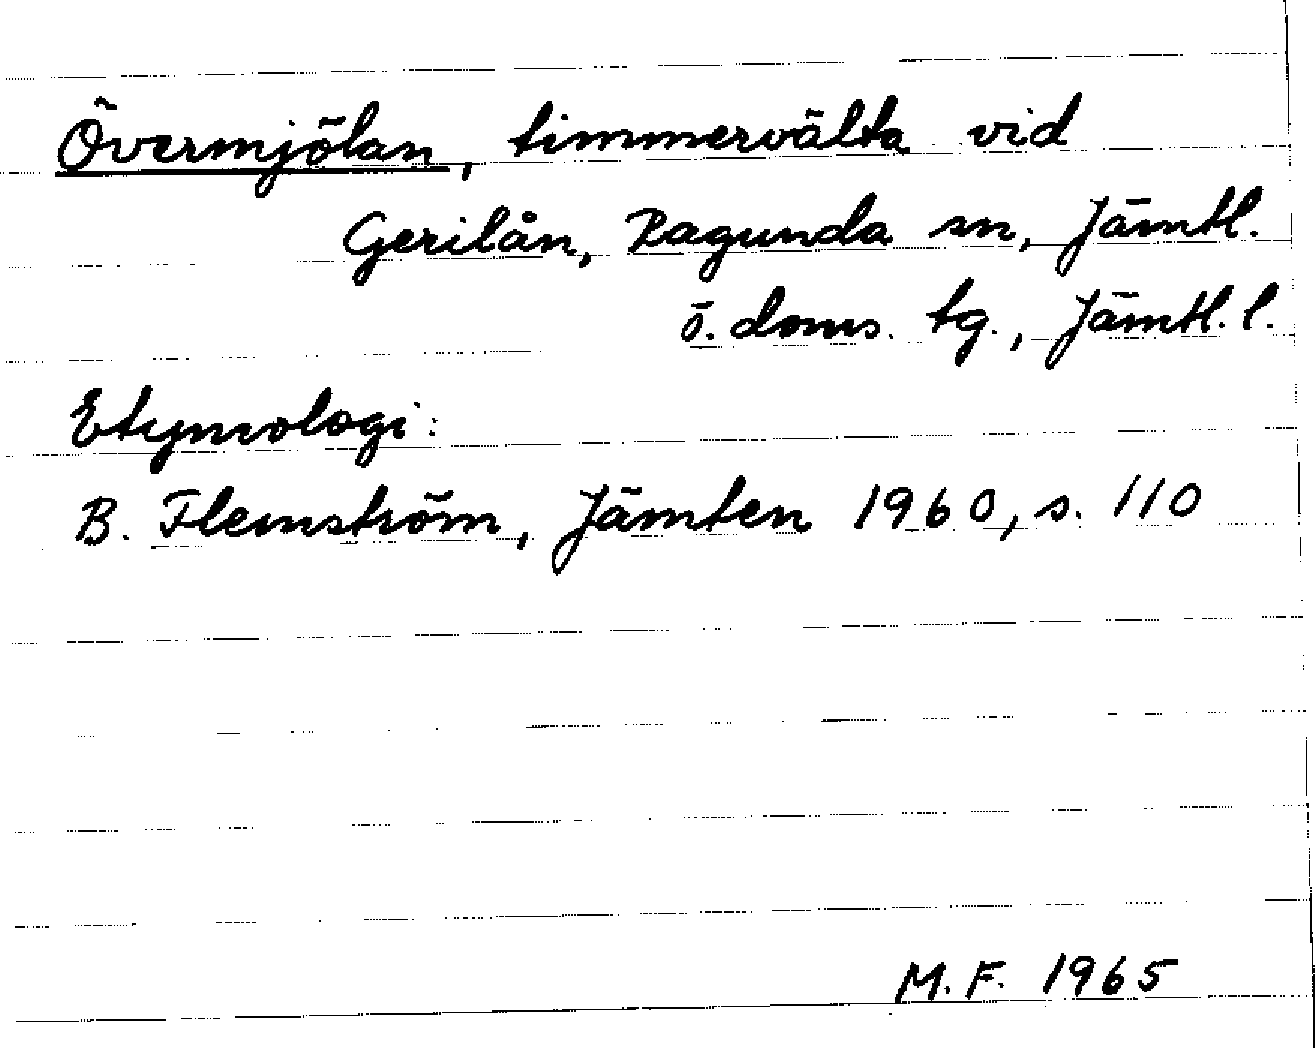 Övermjölan, timmervälta vid
Gerilån, Ragunda sn, Jämtl.
ö. doms. tg., Jämtl. l.
Etymologi:
B. Flemström, Jämten 1960, s. 110
M. F. 1965